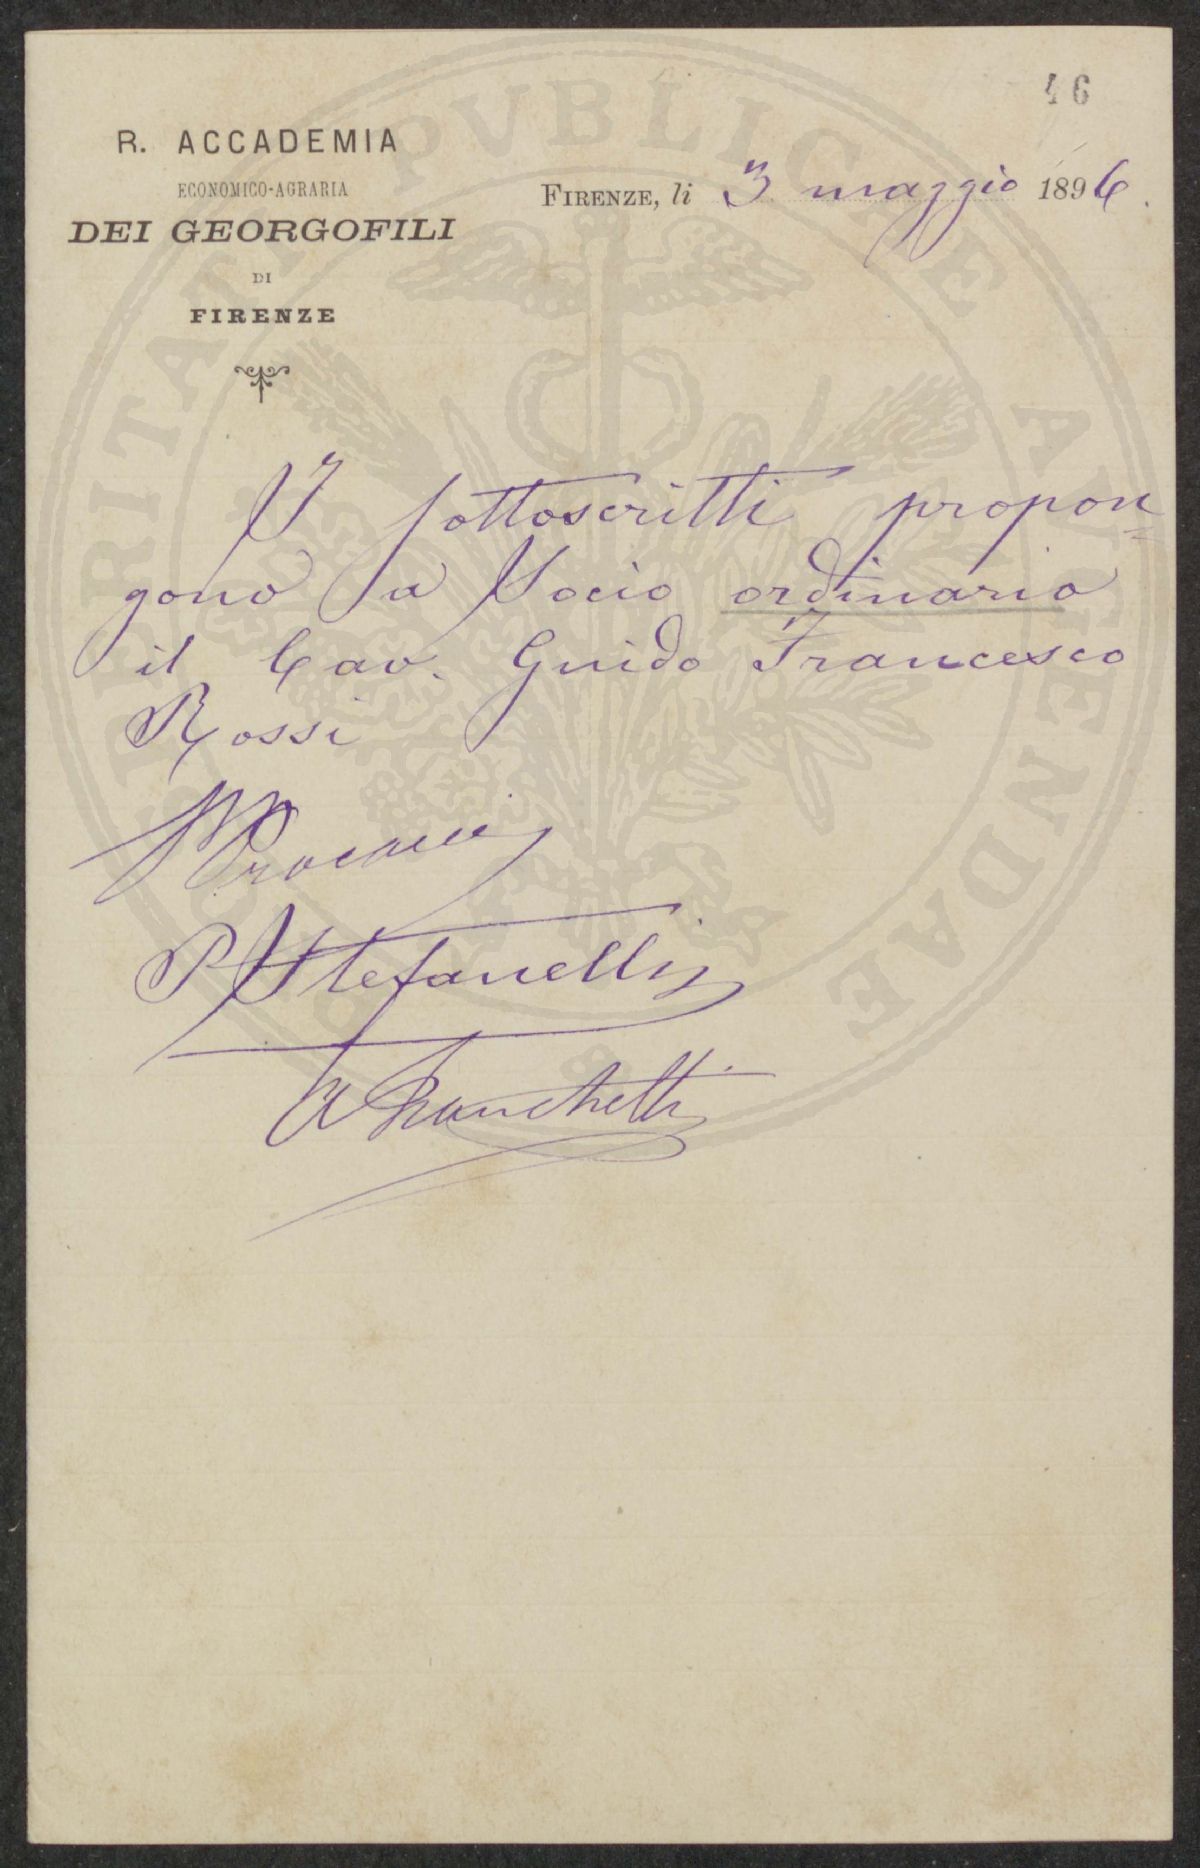 46
R. ACCADEMIA
ECONOMICO-AGRARIA
DEI GEORGOFILI
DI
FIRENZE
FIRENZE, li 3 maggio 1896.
I sottoscritti propon=
gono a Socio ordinario
il Cav. Guido Francesco
Rossi
P Stefanelli
A Franchetti
PROSPERITATI PVBLICAE AVGENDAE